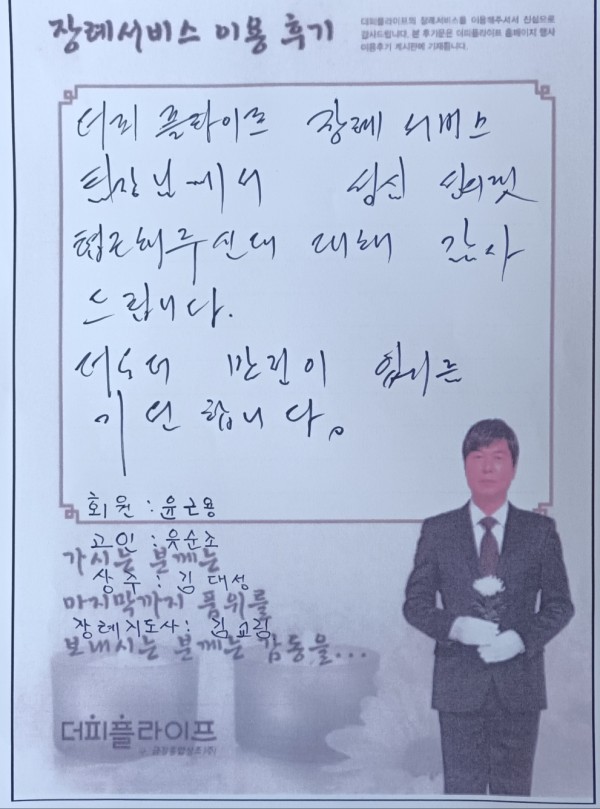 장례서비스 이용 후기
더피플라이프의 장례서비스를 이용해주셔서 진심으로
감사드립니다. 본 후기문은 더피플라이프 홈페이지 행사
이용후기 게시판에 기재됩니다.
더피플라이프 장례 서비스
팀장님에서 성심
대해 감사
드립니다.
더욱더 발전이
기원합니다.
회원 : 윤근용
고인 : 윳순조
가시는 분께는
상주 : 김대성
마지막까지 품위를
장례지도사: 김교림
보내시는 분께는 감동을...
더피플라이프
금강종합상조(주)